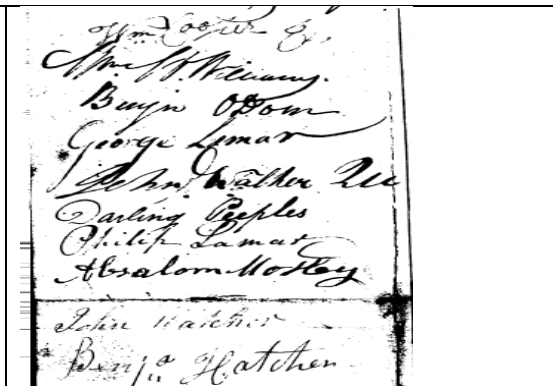 Wm
Wm Williams.
Benjn Odom
George Lamar
John Walker
Darling Peeples
Philip Lamar
Absalom Mosley
John Hatcher
Benja Hatcher